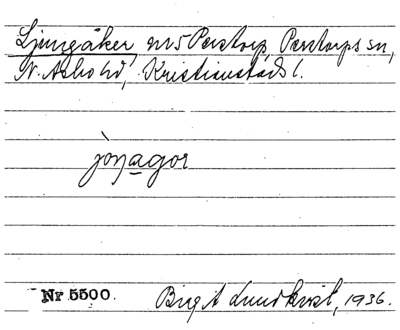 Ljungåker, nr 5 Perstorp, Perstorps sn,
N. Åsbo hd, Kristianstads l.
jòŋagɑr
Nr 5500. Birgit Lundkvist, 1936.